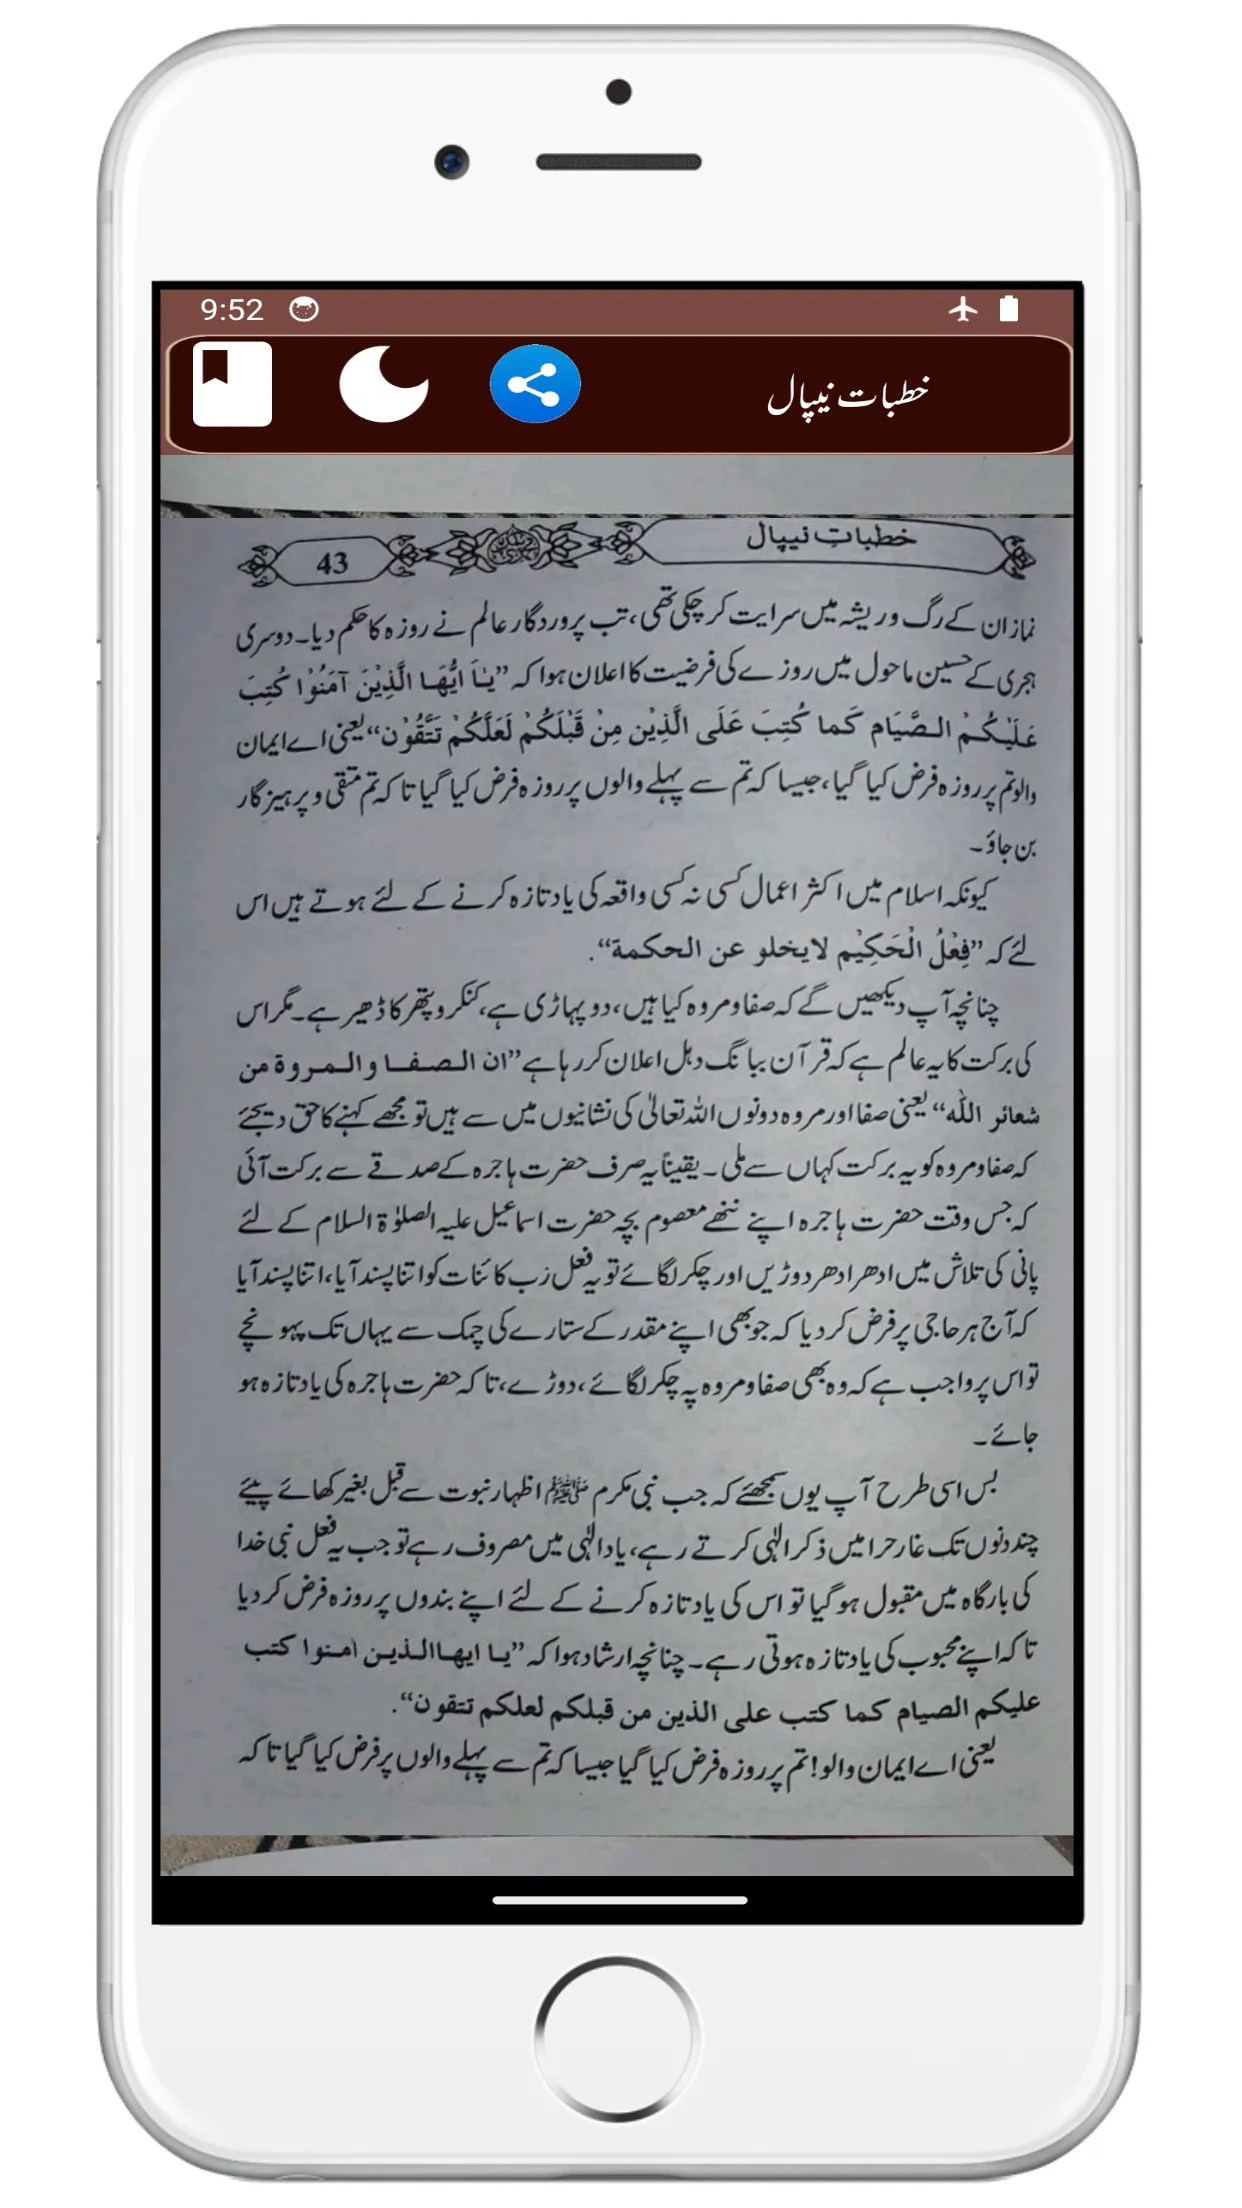 9:52
خطبات نیپال
خطباتِ نیپال
43
نماز ان کے رگ و ریشہ میں سرایت کر چکی تھی، تب پروردگار عالم نے روزہ کا حکم دیا۔ دوسری
ہجری کے حسین ماحول میں روزے کی فرضیت کا اعلان ہوا کہ ”یٰـاَ ایُّهَـا الَّذِیْنَ آمَنُوْا کُتِبَ
عَلَیْکُمْ الصَّیَام کَمَا کُتِبَ عَلَی الَّذِیْنَ مِنْ قَبْلَکُمْ لَعَلَّکُمْ تَتَّقُوْن“ یعنی اے ایمان
والو تم پر روزہ فرض کیا گیا، جیسا کہ تم سے پہلے والوں پر روزہ فرض کیا گیا تا کہ تم متقی و پرہیزگار
بن جاؤ۔
کیونکہ اسلام میں اکثر اعمال کسی نہ کسی واقعہ کی یاد تازہ کرنے کے لئے ہوتے ہیں اس
لئے کہ ”فِعْلُ الْحَکِیْمِ لایخلو عن الحکمة“.
چنانچہ آپ دیکھیں گے کہ صفا و مروہ کیا ہیں، دو پہاڑی ہے، کنکر و پتھر کا ڈھیر ہے۔ مگر اس
کی برکت کا یہ عالم ہے کہ قرآن ببانگ دہل اعلان کر رہا ہے ”ان الصفا والمروة من
شعائر اللّٰه“ یعنی صفا اور مروہ دونوں اللہ تعالیٰ کی نشانیوں میں سے ہیں تو مجھے کہنے کا حق دیجئے
کہ صفا و مروہ کو یہ برکت کہاں سے ملی۔ یقیناً یہ صرف حضرت ہاجرہ کے صدقے سے برکت آئی
کہ جس وقت حضرت ہاجرہ اپنے ننھے معصوم بچہ حضرت اسماعیل علیہ الصلوٰة السلام کے لئے
پانی کی تلاش میں ادھر ادھر دوڑیں اور چکر لگائے تو یہ فعل رب کائنات کو اتنا پسند آیا، اتنا پسند آیا
کہ آج ہر حاجی پر فرض کر دیا کہ جو بھی اپنے مقدر کے ستارے کی چمک سے یہاں تک پہونچے
تو اس پر واجب ہے کہ وہ بھی صفا و مروہ پہ چکر لگائے، دوڑے، تا کہ حضرت ہاجرہ کی یاد تازہ ہو
جائے۔
بس اسی طرح آپ یوں سمجھئے کہ جب نبی مکرم ﷺ اظہار نبوت سے قبل بغیر کھائے پیئے
چند دنوں تک غار حرا میں ذکر الٰہی کرتے رہے، یاد الٰہی میں مصروف رہے تو جب یہ فعل نبی خدا
کی بارگاہ میں مقبول ہو گیا تو اس کی یاد تازہ کرنے کے لئے اپنے بندوں پر روزہ فرض کر دیا
تا کہ اپنے محبوب کی یاد تازہ ہوتی رہے۔ چنانچہ ارشاد ہوا کہ ”یـا ایهاالـذیـن اٰمـنوا کتب
علیکم الصیام کـما کتب علی الذین من قبلکم لعلکم تتقون“.
یعنی اے ایمان والو! تم پر روزہ فرض کیا گیا جیسا کہ تم سے پہلے والوں پر فرض کیا گیا تا کہ